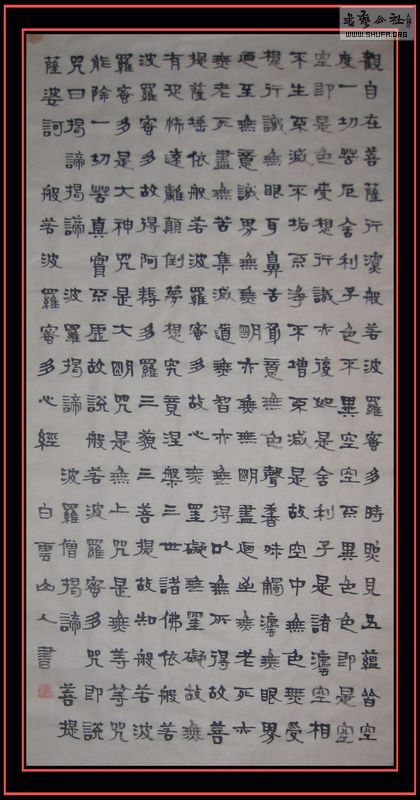 書藝公社
WWW.SHUFA.ORG
觀自在菩薩行深般若波羅蜜多時照見五蘊皆空
度一切苦厄舍利子色不異空空不異色色即是空
空即是色受想行識亦復如是舍利子是諸灋空相
不生不滅不垢不淨不增不減是故空中無色無受
想行識無眼耳鼻舌身意無色聲香味觸灋無眼界
廼至無意識界無無明亦無無明盡廼至無老死亦
無老死盡無苦集滅道無智亦無得以無所得故菩
提薩埵依般若波羅蜜多故心無罣礙無罣礙故無
有恐怖遠離顛倒夢想究竟涅槃三世諸佛依般若
波羅蜜多故得阿耨多羅三藐三菩提故知般若波
羅蜜多是大神咒是大明咒是無上咒是無等等咒
能除一切苦真實不虛故說般若波羅蜜多咒即說
咒曰揭諦揭諦波羅揭諦波羅僧揭諦菩提
薩婆訶般若波羅蜜多心經 白雲山人書